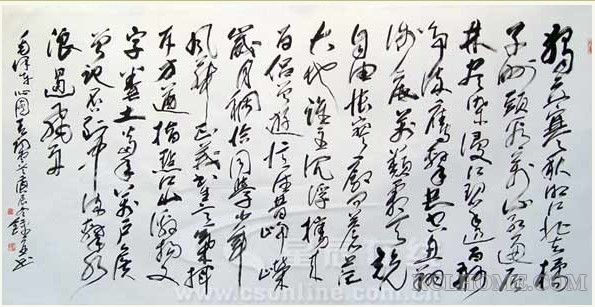 獨立寒秋湘江北去橘
子洲頭看萬山红遍层
林尽染漫江碧透百舸
争流鹰击长空鱼翔
浅底萬類霜天競
自由怅寥廓问苍茫
大地谁主沉浮携来
百侣曾遊忆往昔峥嵘
岁月稠恰同学少年
风华正茂书生意气挥
斥方遒指点江山激扬文
字粪土當年萬户侯
曾记否到中流击水
浪遏飞舟
毛泽东沁园春长沙
www.csonline.com.cn